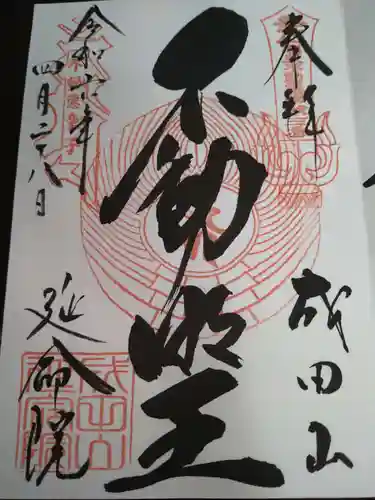 奉拝
成田山
不動明王
令和六年
四月二十八日
延命院